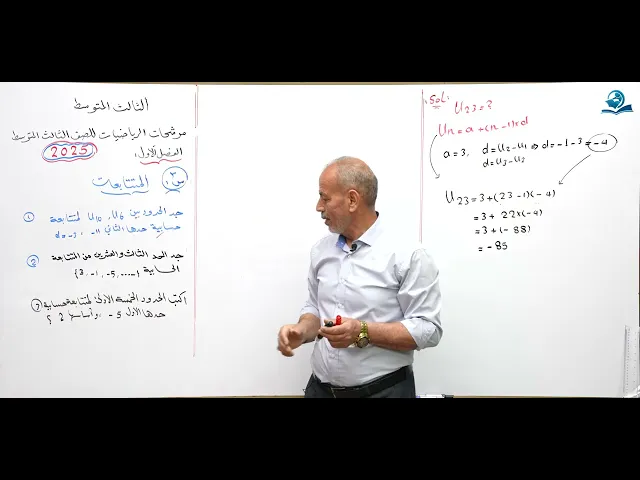 الثالث المتوسط
مرشحات الرياضيات للصف الثالث المتوسط
الفصل الأول: 2025
س٣: المتتابعات
① جد الحدود بين U6 ، U10 لمتتابعة
حسابية حدها الثاني 11-
② جد الحد الثالث والعشرين من المتتابعة
الحسابية {3, -1, -5, ......}
③ اكتب الحدود الخمسة الاولى لمتتابعة حسابية
حدها الأول 5 - ، وأساسها 2 ؟
Sol:
U23 = ?
Un = a + (n - 1)d
a = 3, d = U2 - U1 ⇒ d = -1 - 3 = -4
d = U3 - U2
U23 = 3 + (23 - 1)(-4)
= 3 + 22x(-4)
= 3 + (-88)
= -85